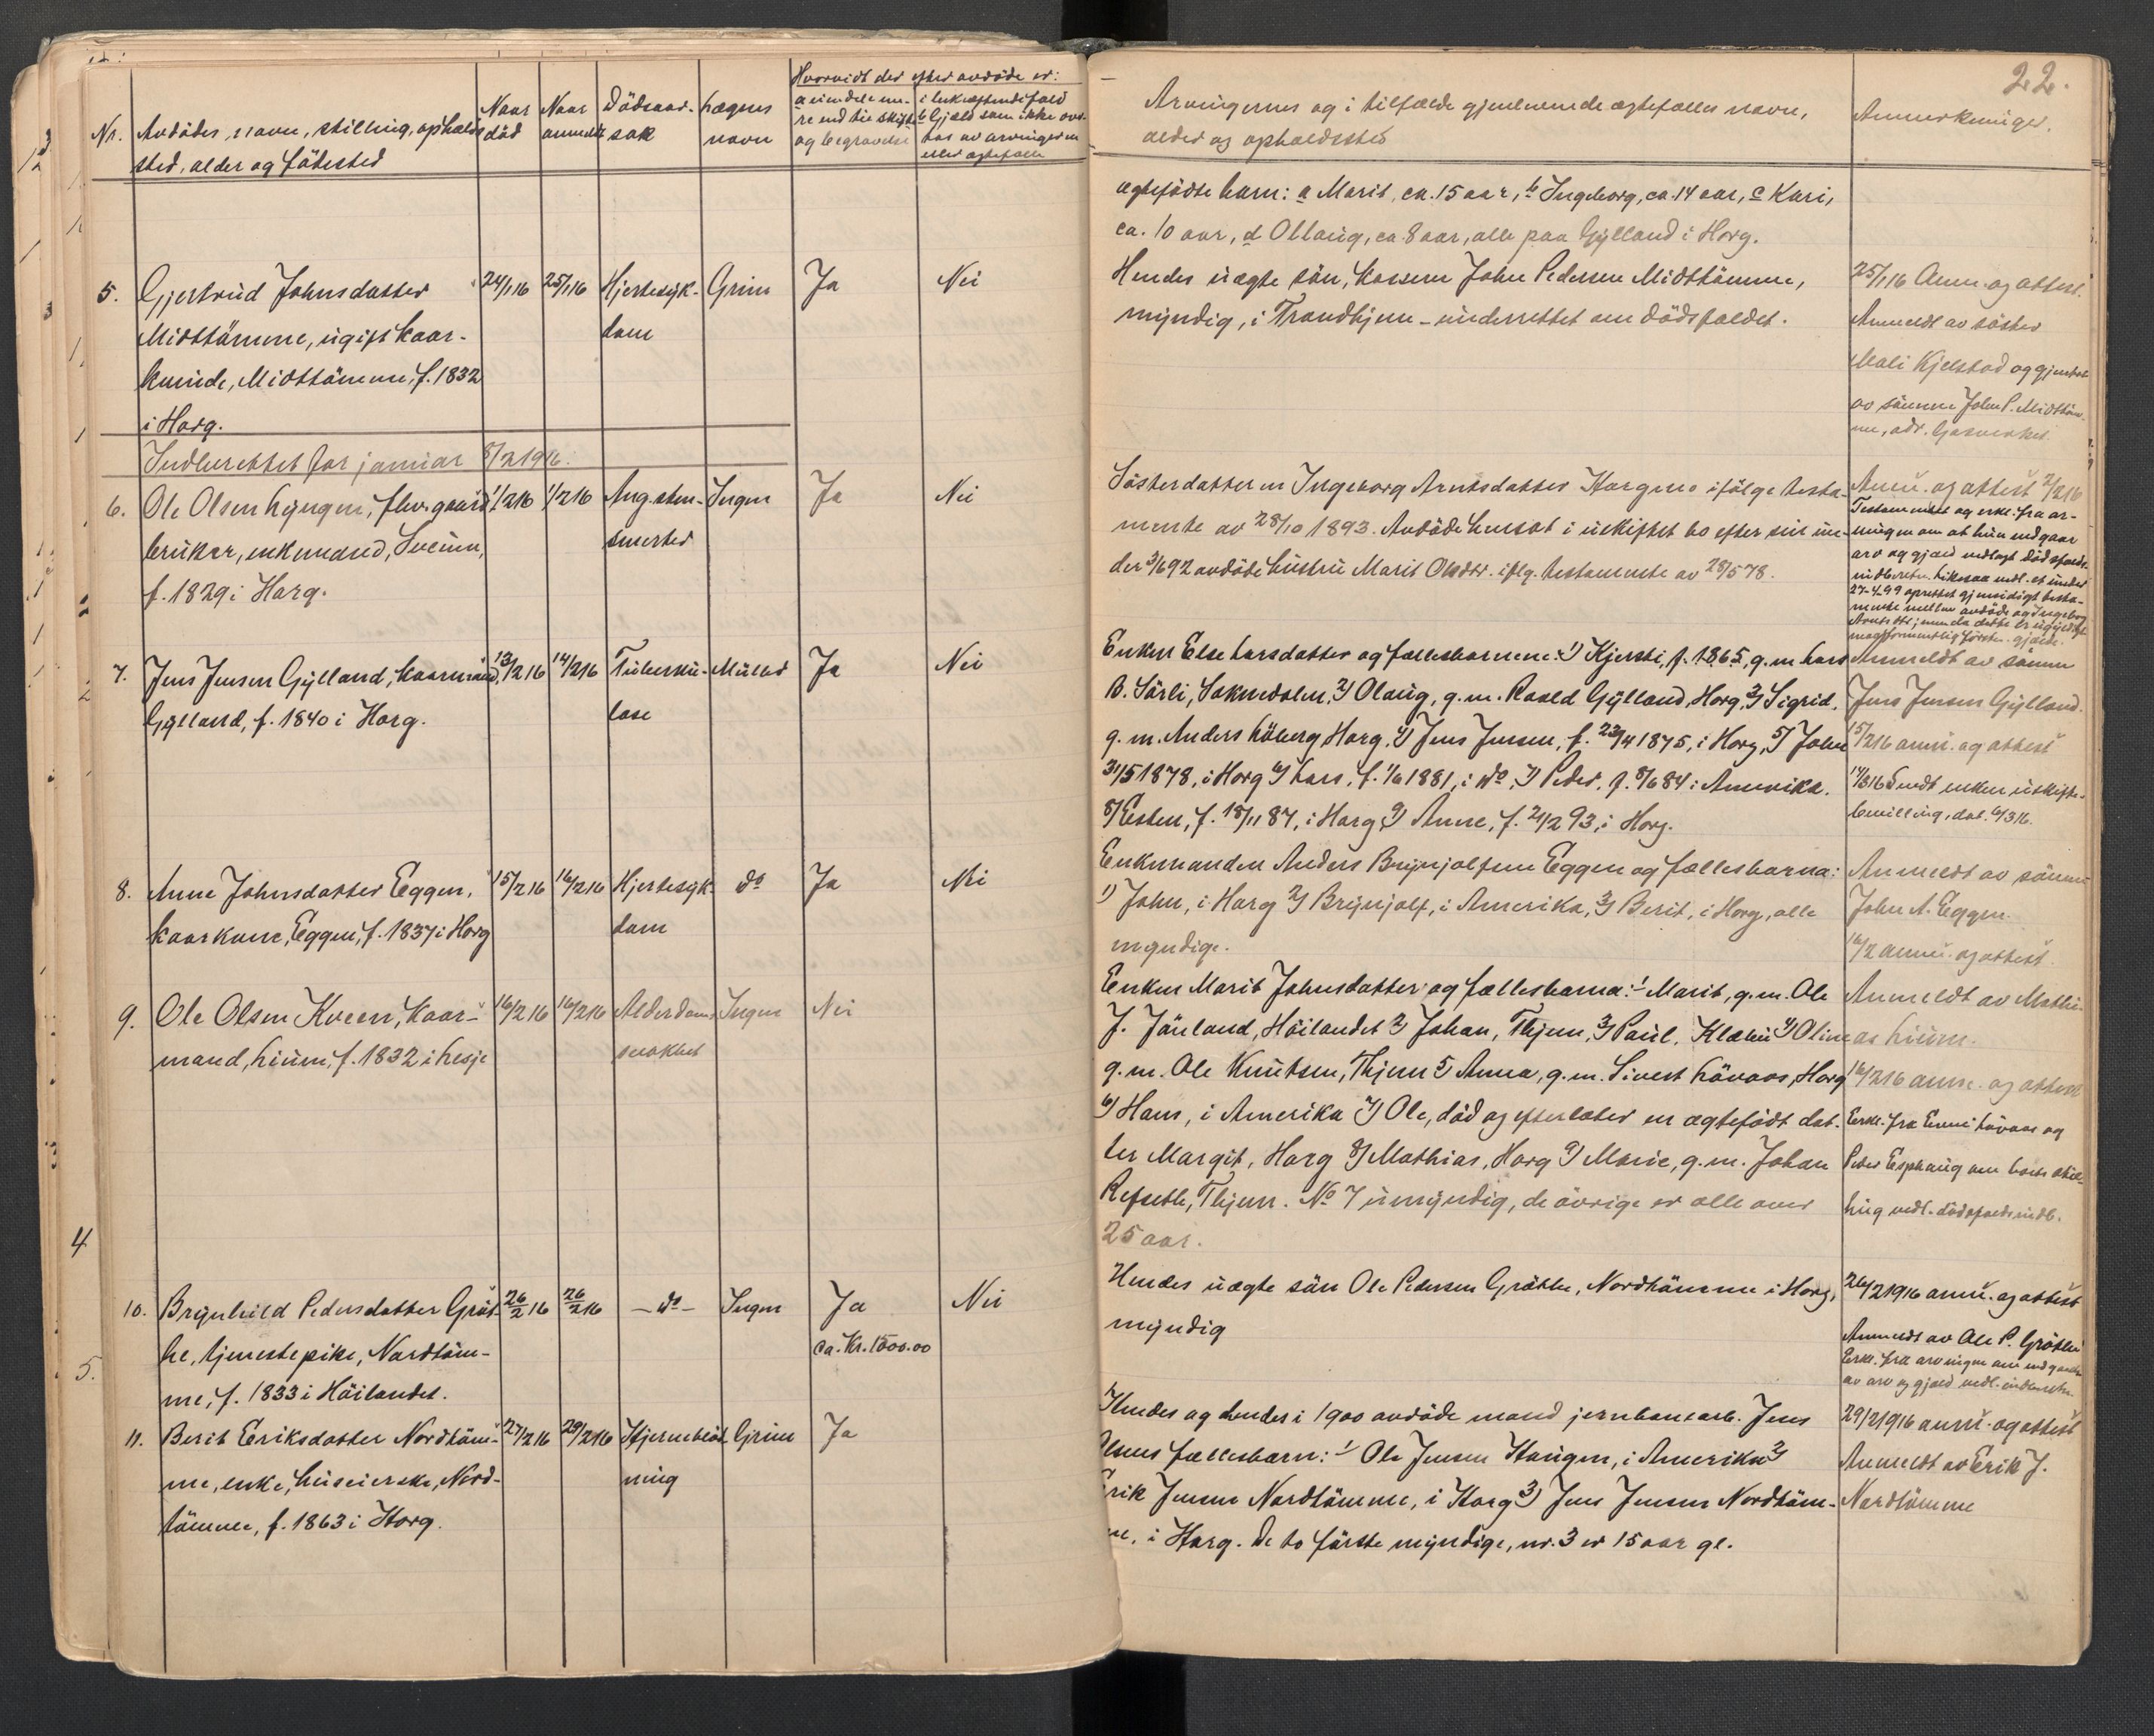 22.
Nr.
Avdødes navn, stilling, opholds-
sted, alder og fødested
Naar
død
Naar
anmeldt
Dødsaar-
sak
Lægens
navn
Hvorvidt der efter avdøde er:
a eiendele me-
re end til skifte
og begravelse
i bekræftende fald
b Gjæld som ikke over-
tas av arvingerne
eller ægtefælle
Arvingernes og i tilfælde gjenlevende ægtefælles navn,
alder og opholdssted
Anmerkninger.
ægtefødte barn: a Marit, ca. 15 aar, b Ingeborg, ca. 14 aar, c Kari,
ca. 10 aar, d Ollaug, ca. 8 aar, alle paa Gylland i Horg.
5. Gjertrud Johnsdatter
Midttømme, ugift kaar-
kvinde, Midttømme, f. 1832
i Horg.
24/1 16
25/1 16
Hjertesyk-
dom
Grim
Ja
Nei
Hendes uægte søn, kasserer John Pedersen Midttømme,
myndig, i Trondhjem - underrettet om dødsfaldet.
25/1 16 Anm. og attest.
Anmeldt av søster
Mali Kjelstad og gjentat
av sønnen John P. Midttøm-
me, adr. Gasverket.
Indberettet for januar 8/2 1916.
6. Ole Olsen Lyngen, flvr. gaard-
bruker, enkemand, Sveinn,
f. 1829 i Horg.
1/2 16
1/2 16
Ingen
Ja
Nei
Søsterdatteren Ingeborg Arntsdatter Horgmo ifølge testa-
mente av 28/10 1893. Avdøde hensat i uskiftet bo efter sin un-
der 3/6 92 avdøde hustru Marit Olsdtr. iflg. testamente av 28/5 78.
Anm. og attest 2/2 16
Testamentet og erkl. fra ar-
vingen om at hun vedgaar
arv og gjæld vedlagt dødsfalds-
indberetn. Likesaa vedl. et under
27-4-99 oprettet gjensidigt testa-
mente mellem avdøde og Ingeborg
7. Jens Jensen Gylland, kaarmand,
Gylland, f. 1840 i Horg.
13/2 16
14/2 16
Tuberku-
lose
Müller
Ja
Nei
Enken Else Larsdatter og fællesbarnene: 1) Kjersti, f. 1865, g. m. Lars
B. Sørli, Soknedalen, 2) Olaug, g. m. Roald Gylland, Horg, 3) Sigrid,
g. m. Anders Høberg, Horg, 4) Jens Jensen, f. 23/4 1875, i Horg, 5) John
31/5 1878, i Horg 6) Lars, f. 1/6 1881, i do, 7) Peder, f. 8/6 84 i Amerika.
8) Esten, f. 18/11 87, i Horg 9) Anne, f. 21/2 93, i Horg.
Anmeldt av sønnen
Jens Jensen Gylland.
15/2 16 anm. og attest
14/3 16 Sendt enken uskifte-
bevilling, dat. 6/3 16.
8. Anne Johnsdatter Eggen,
kaarkone, Eggen, f. 1837 i Horg
15/2 16
16/2 16
Hjertesyk-
dom
do
Ja
Nei
Enkemanden Anders Brynjolfsen Eggen og fællesbarna:
1) John, i Horg 2) Brynjolf, i Amerika, 3) Berit, i Horg, alle
myndige.
Anmeldt av sønnen
John A. Eggen
16/2 anm. og attest.
9. Ole Olsen Kveen, kaar-
mand, Lium, f. 1832 i Lesje
16/2 16
16/2 16
Alderdoms-
svakhet
Ingen
Nei
Enken Marit Johnsdatter og fællesbarna: 1 Marit, g. m. Ole
J. Jønland, Høilandet 2) Johan, Thjem, 3) Paul, Klæbu 4) Oline
g. m. Ole Knutsen, Thjem 5) Anna, g. m. Sivert Løvaas, Horg
6) Hans, i Amerika 7) Ole, død og efterlater en ægtefødt dat-
ter Margit, Horg 8) Mathias, Horg 9) Marie, g. m. Johan
Refseth, Thjem. No 7 umyndig, de øvrige er alle over
25 aar.
Anmeldt av Mathi-
as Lium.
16/2 16 anm. og attest
Erkl. fra Løvaas og
Peder Esphaug om boets stil-
ling vedl. dødsfaldsindb.
10. Brynhild Pedersdatter Grøt-
he, tjenestepike, Nordtøm-
me, f. 1833 i Høilandet.
26/2 16
26/2 16
- do -
Ingen
Ja
ca. Kr. 1500.00
Nei
Hendes uægte søn Ole Pedersen Grøthe, Nordtømme i Horg,
myndig
26/2 1916 anm. og attest
Anmeldt av Ole P. Grøthe
Erkl. fra arvingen om vedgaaelse
av arv og gjæld vedl. indberetn.
11. Berit Eriksdatter Nordtøm-
me, enke, huseierske, Nord-
tømme, f. 1863 i Horg.
27/2 16
29/2 16
Hjerneblød-
ning
Grim
Ja
Hendes og hendes i 1900 avdøde mand jernbanearb. Jens
Olsens fællesbarn: 1) Ole Jensen Haugen, i Amerika 2)
Erik Jensen Nordtømme, i Horg 3) Jens Jensen Nordtøm-
me, i Horg. De to første myndige, nr. 3 er 15 aar gl.
29/2 1916 anm. og attest
Anmeldt av Erik J.
Nordtømme
4
5.